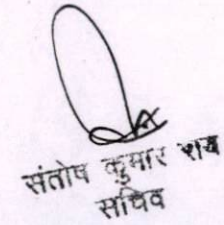 संतोष कुमार राव
सचिव